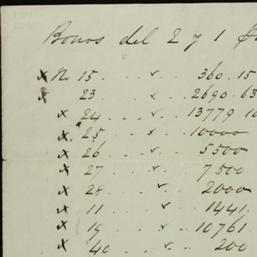 Bonos del 2 y 1
x No 15 . . . v . . 360.15
x 23 . . . v . . 2690.63
x 24 . . . v . . 13779.10
x 25 . . . v . . 10000
x 26 . . . v . . 5500
x 27 . . . v . . 7500
x 28 . . . v . . 2000
x 11 . . . v . . 1441.
x 19 . . . v . . 10761
x 40 . . . v . . 200